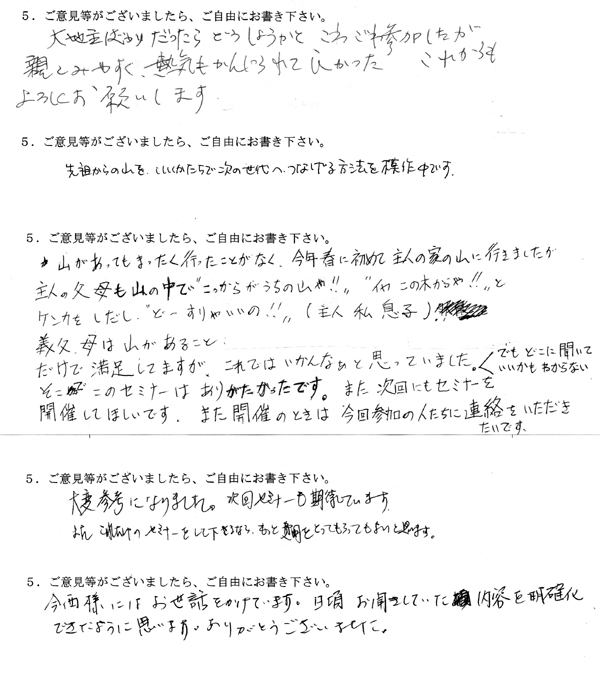 5．ご意見等がございましたら、ご自由にお書き下さい。
大地主ばかりだったら どうしようかと こわごわ参加したが
親しみやすく、熱気もかんじられて良かった これからも
よろしくお願いします
5．ご意見等がございましたら、ご自由にお書き下さい。
先祖からの山を、いいかたちで次の世代へつなげる方法を模作中です。
5．ご意見等がございましたら、ご自由にお書き下さい。
山があってもまったく行ったことがなく、今年春に初めて主人の家の山に行きましたが
主人の父母も山の中で"こっからがうちの山や!!〟 "イヤ この木からや!!〟と
ケンカをしだし"どーすりゃいいの!!〟（主人 私 息子）
義父、母は山があること
だけで満足してますが、これではいかんなぁと思っていました。でも どこに聞いて
いいかもわからない
そこで このセミナーは ありがたかったです。また 次回にもセミナーを
開催してほしいです。また開催のときは 今回参加の人たちに連絡をいただき
たいです。
5．ご意見等がございましたら、ご自由にお書き下さい。
大変参考になりました。次回セミナーも期待しています。
また これだけのセミナーをして下さるなら、もっと費用をとってもらってもよいと思います。
5．ご意見等がございましたら、ご自由にお書き下さい。
今西様にはお世話をかけています。日頃 お聞きしていた 内容を明確化
できたように思います。ありがとうございました。